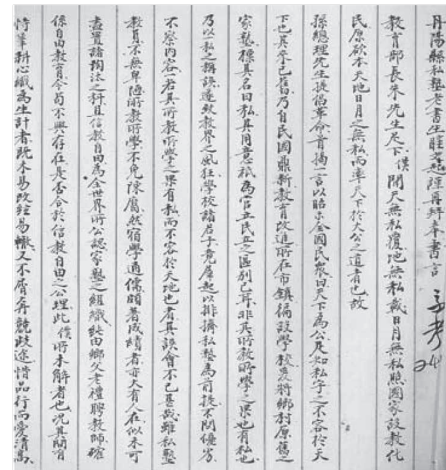 丹陽縣私塾老書生眭文起經再拜奉書言
教育部長朱先生足下僕聞天無私覆地無私載日月無私照國家設教化
民原欲本天地日月之無私而準天下於大公之道者也故
孫總理先生提倡革命首揭一言以昭示全國民眾曰天下為公足知私字之不容於天
下也其來已舊乃自民國鼎新教育改進所在市鎮徧設學校爰將鄉村原舊之
家塾標其名曰私其用意祇為官立民立之區別已耳非其所教所學之果有私也
乃以私之稱誤遂致教界之風狂學校諸君子竟屢起以排擠私塾為前提不問優劣
不察內容一若其所教所學之果有私而不容於天地也者其誤會不已甚哉雖私塾
教員不無卑陋所教所學不免陳腐然宿學通儒頗著成績者亦大有人在似未可
盡置諸淘汰之科且信教自由為全世界所公認家塾之組織純由鄉父老禮聘教師確
係自由教育今苟不興存在是否合於信教自由之公理此僕所未解者也況其間有
恃筆耕心織為生計者既未易改絃易轍又不屑奔競歧途惜品行而愛清高